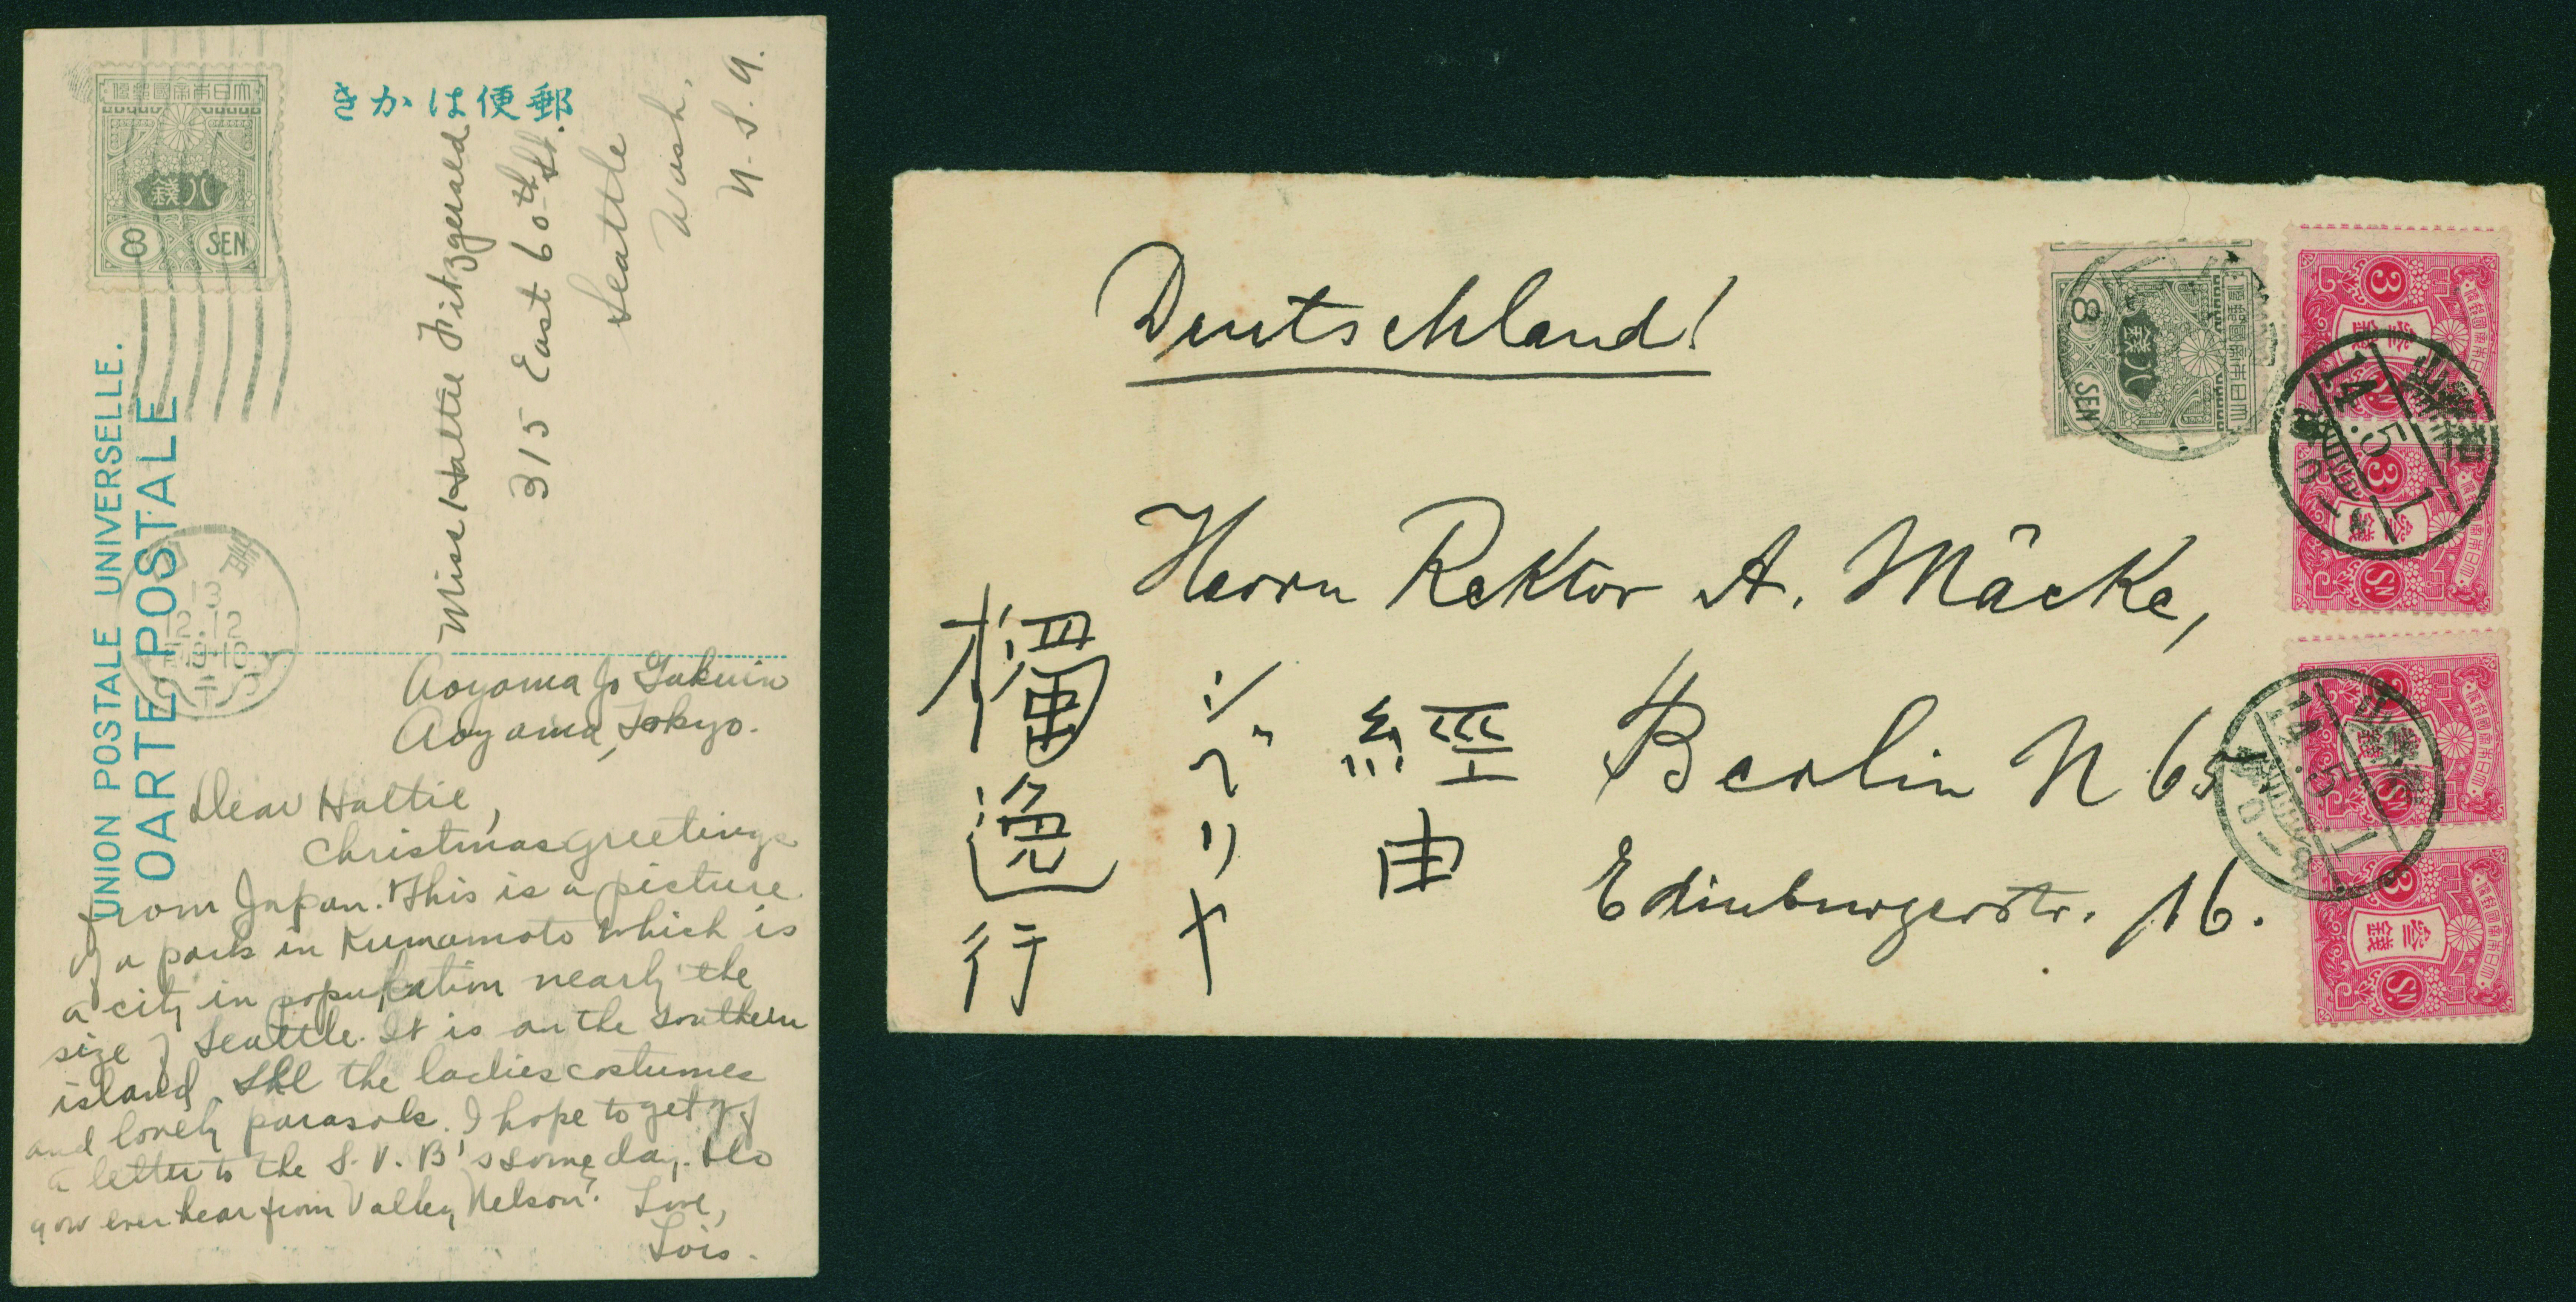 きかは便郵
大日本帝國郵便
八銭
8 SEN
UNION POSTALE UNIVERSELLE.
CARTE POSTALE
Miss Hattie Fitzgerald
315 East 60th St.
Seattle
Wash.
U.S.A.
13
12.12
9-10
Aoyama Jo Gakuin
Aoyama, Tokyo.
Dear Hattie,
Christmas greetings
from Japan. This is a picture
of a park in Kumamoto which is
a city in population nearly the
size of Seattle. It is on the southern
island. See the ladies costumes
and lovely parasols. I hope to get off
a letter to the S.V.B's some day. Do
you ever hear from Valley Nelson?
Love,
Lois.
Deutschland!
Herrn Rektor A. Mäcke,
Berlin N 65
Edinburgerstr. 16.
獨逸行
シベリヤ
経由
大日本帝國郵便
八銭
8 SEN
大日本帝國郵便
参銭
3 SN
大日本帝國郵便
参銭
3 SN
大日本帝國郵便
参銭
3 SN
大日本帝國郵便
参銭
3 SN
14.5.1
14.5.1